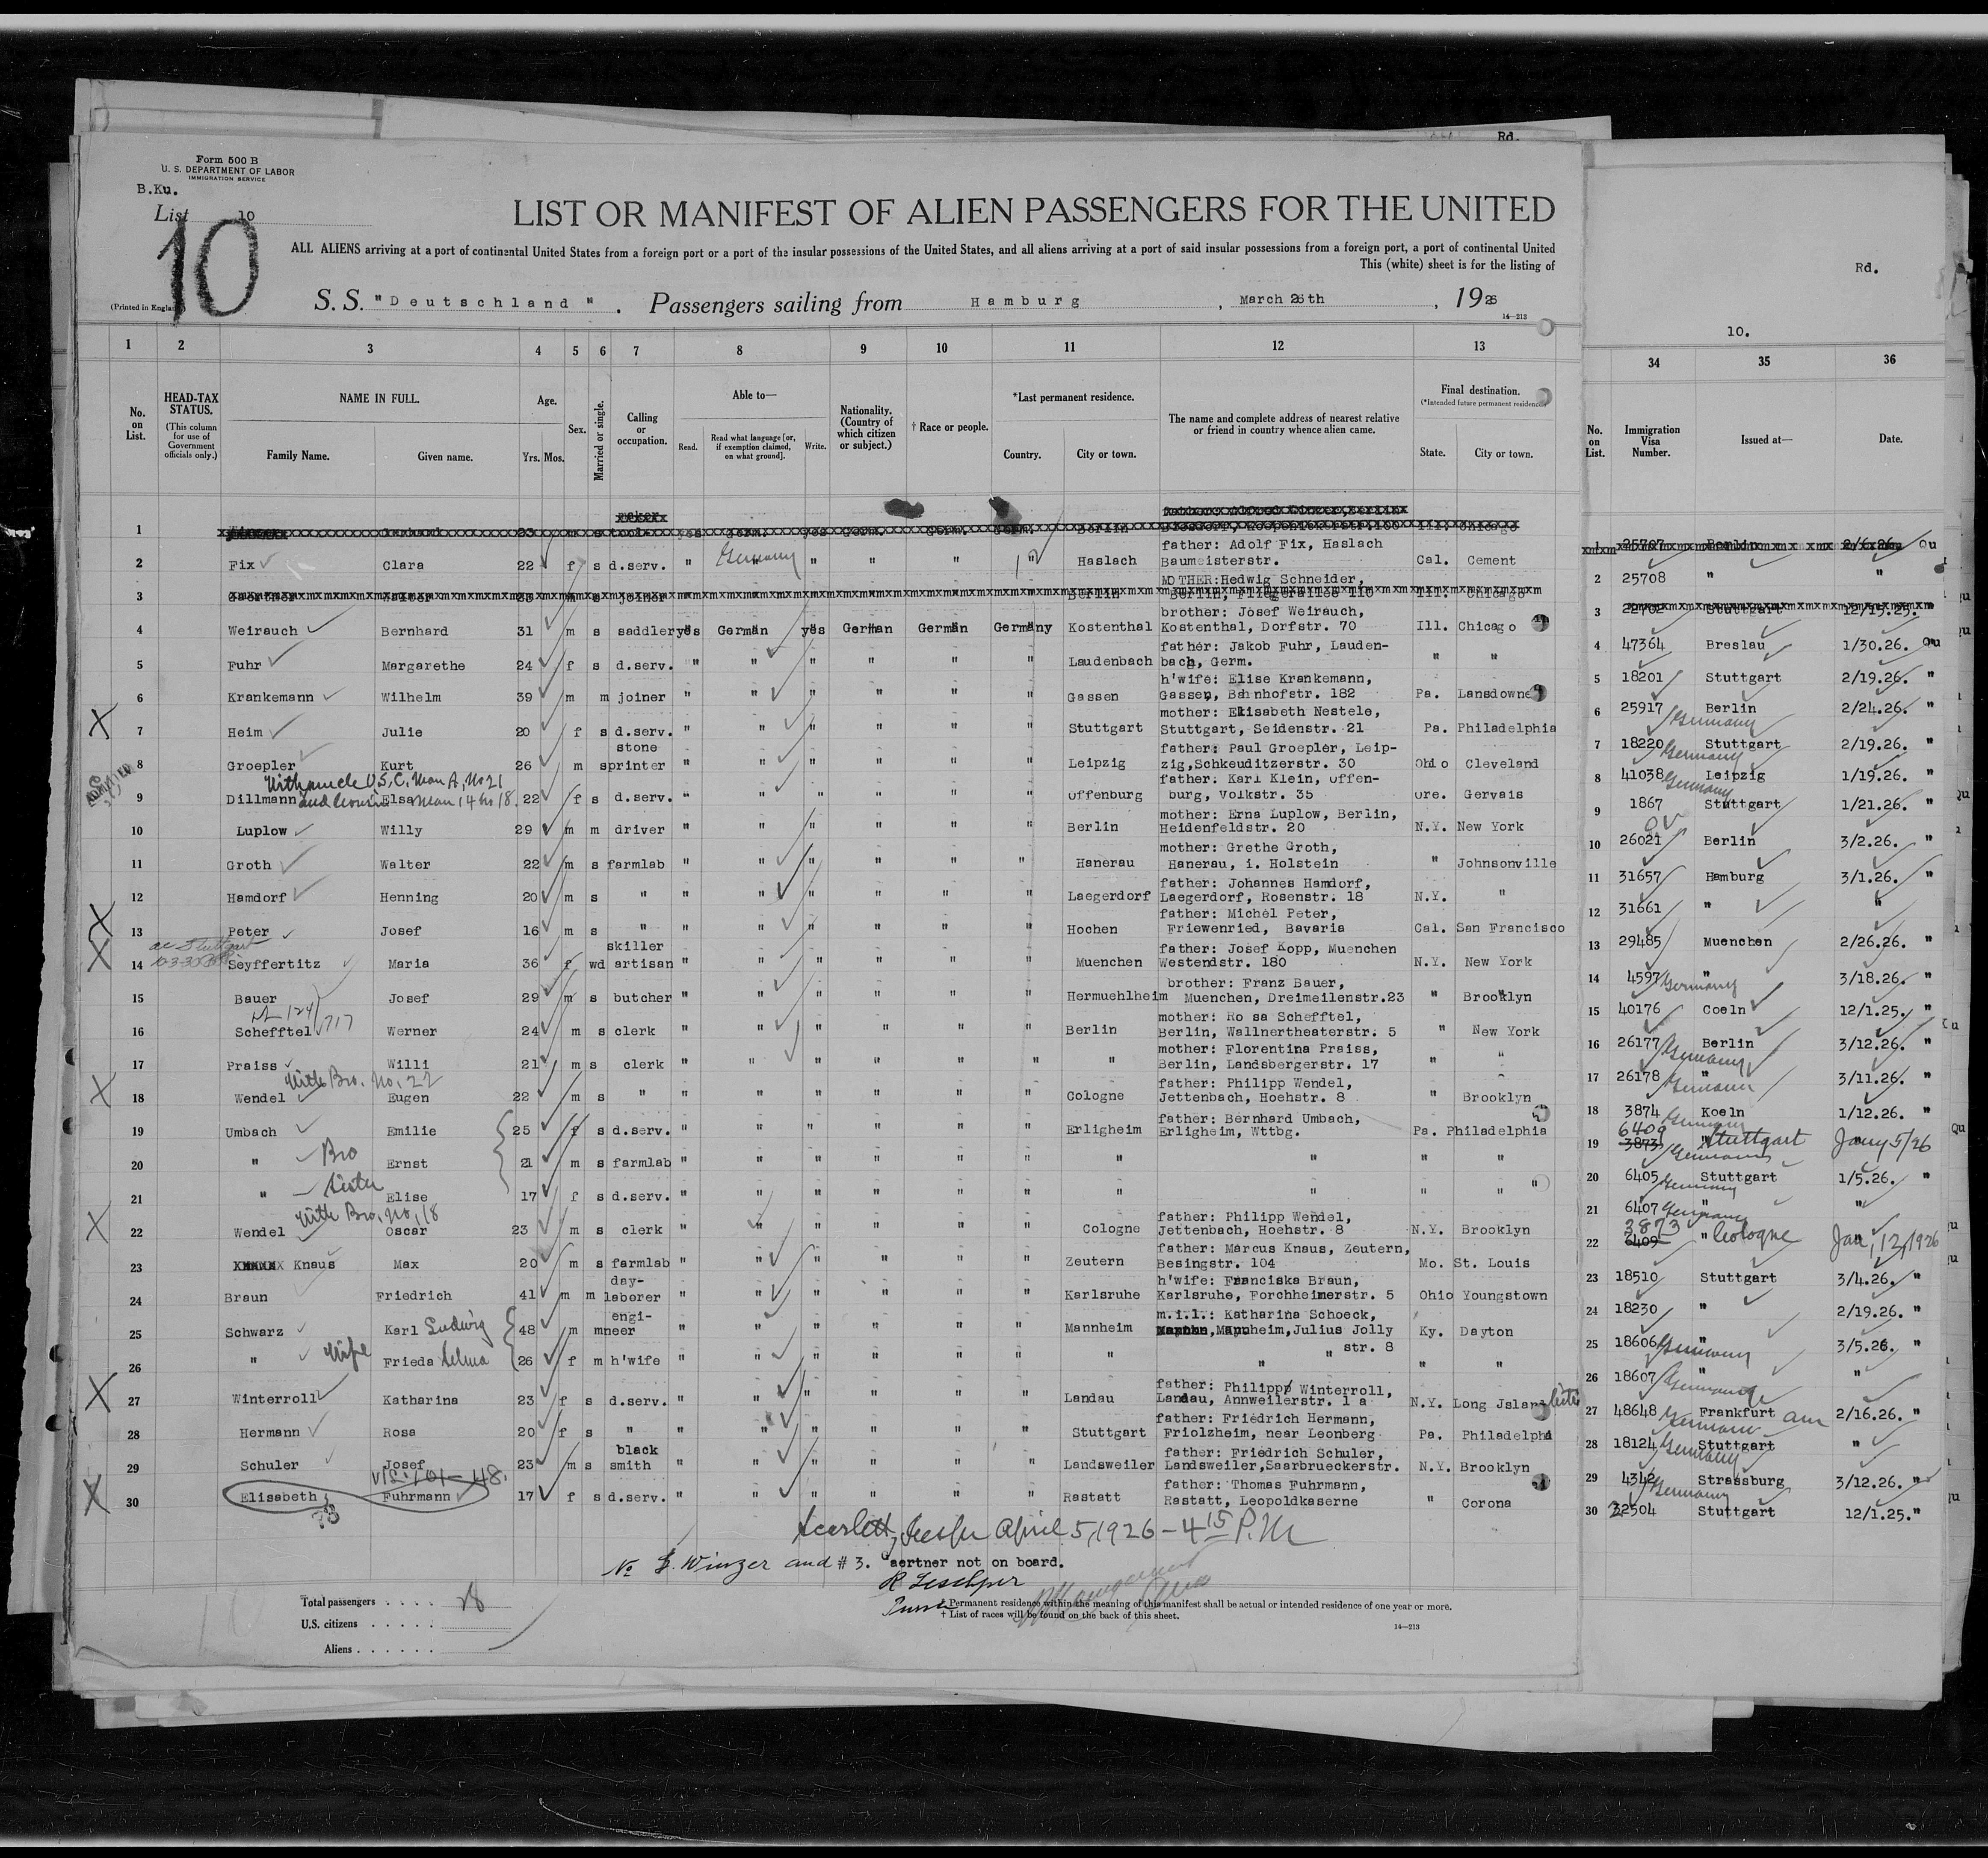 Rd.
Form 500 B
U. S. DEPARTMENT OF LABOR
IMMIGRATION SERVICE
B.Ku.
List 10
10
LIST OR MANIFEST OF ALIEN PASSENGERS FOR THE UNITED
ALL ALIENS arriving at a port of continental United States from a foreign port or a port of the insular possessions of the United States, and all aliens arriving at a port of said insular possessions from a foreign port, a port of continental United
This (white) sheet is for the listing of
(Printed in England)
S. S. "Deutschland". Passengers sailing from Hamburg, March 26th, 1926
14—213
Rd.
10.
1 2 3 4 5 6 7 8 9 10 11 12 13 34 35 36
No. on List.
HEAD-TAX STATUS.
(This column for use of Government officials only.)
NAME IN FULL.
Family Name. Given name.
Age.
Yrs. Mos.
Sex.
Married or single.
Calling or occupation.
Able to—
Read. Read what language [or, if exemption claimed, on what ground]. Write.
Nationality. (Country of which citizen or subject.)
† Race or people.
*Last permanent residence.
Country. City or town.
The name and complete address of nearest relative or friend in country whence alien came.
Final destination.
(*Intended future permanent residence)
State. City or town.
No. on List.
Immigration Visa Number.
Issued at—
Date.
1 23 m s Berlin Ill. Chicago 1 25707 Berlin 2/6.26. Qu
father: Adolf Fix, Haslach
2 Fix Clara 22 f s d.serv. " Germany " " " " Haslach Baumeisterstr. Cal. Cement 2 25708 " "
MOTHER:Hedwig Schneider,
3 Gaertner joiner Berlin Ill. Chicago 3 Stuttgart 12/15.25. "
brother: Josef Weirauch,
4 Weirauch Bernhard 31 m s saddler yes German yes German German Germany Kostenthal Kostenthal, Dorfstr. 70 Ill. Chicago 4 47364 Breslau 1/30.26. Qu
father: Jakob Fuhr, Lauden-
5 Fuhr Margarethe 24 f s d.serv. " " " " " " Laudenbach bach, Germ. " " 5 18201 Stuttgart 2/19.26. "
h'wife: Elise Krankemann,
6 Krankemann Wilhelm 39 m m joiner " " " " " " Gassen Gassen, Bahnhofstr. 182 Pa. Lansdowne 6 25917 Berlin 2/24.26. "
Germany
mother: Elisabeth Nestele,
X 7 Heim Julie 20 f s d.serv. " " " " " " Stuttgart Stuttgart, Seidenstr. 21 Pa. Philadelphia 7 18220 Stuttgart 2/19.26. "
Germany
stone father: Paul Groepler, Leip-
8 Groepler Kurt 26 m s printer " " " " " " Leipzig zig,Schkeuditzerstr. 30 Ohio Cleveland 8 41038 Leipzig 1/19.26. "
Germany
With uncle U.S.C. Man A, No 21
and cousin Man 14 No 18.
father: Karl Klein, Offen-
9 Dillmann Elsa 22 f s d.serv. " " " " " " Offenburg burg, Volkstr. 35 Ore. Gervais 9 1867 Stuttgart 1/21.26. "
mother: Erna Luplow, Berlin,
10 Luplow Willy 29 m m driver " " " " " " Berlin Heidenfeldstr. 20 N.Y. New York 10 26021 Berlin 3/2.26. "
mother: Grethe Groth,
11 Groth Walter 22 m s farmlab " " " " " " Hanerau Hanerau, i. Holstein " Johnsonville 11 31657 Hamburg 3/1.26. "
father: Johannes Hamdorf,
12 Hamdorf Henning 20 m s " " " " " " " Laegerdorf Laegerdorf, Rosenstr. 18 N.Y. " 12 31661 " "
father: Michel Peter,
X 13 Peter Josef 16 m s " " " " " " " Hochen Friewenried, Bavaria Cal. San Francisco 13 29485 Muenchen 2/26.26. "
skiller father: Josef Kopp, Muenchen
X 14 Seyffertitz Maria 36 f wd artisan " " " " " " Muenchen Westendstr. 180 N.Y. New York 14 4597 " 3/18.26. "
Germany
brother: Franz Bauer,
15 Bauer Josef 29 m s butcher " " " " " " Hermuehlheim Muenchen, Dreimeilenstr.23 " Brooklyn 15 40176 Coeln 12/1.25. "
mother: Rosa Schefftel,
16 Schefftel Werner 24 m s clerk " " " " " " Berlin Berlin, Wallnertheaterstr. 5 " New York 16 26177 Berlin 3/12.26. "
Germany
mother: Florentina Praiss,
17 Praiss Willi 21 m s clerk " " " " " " " Berlin, Landsbergerstr. 17 " " 17 26178 " 3/11.26. "
Germany
With Bro. No. 22
father: Philipp Wendel,
X 18 Wendel Eugen 22 m s " " " " " " " Cologne Jettenbach, Hoehstr. 8 " Brooklyn 18 3874 Koeln 1/12.26. "
Germany
father: Bernhard Umbach,
19 Umbach Emilie 25 f s d.serv. " " " " " " Erligheim Erligheim, Wttbg. Pa. Philadelphia 19 3873 6409 " Stuttgart Jany 5/26
Germany
20 " Bro Ernst 21 m s farmlab " " " " " " " " " " 20 6405 Stuttgart 1/5.26. "
Germany
21 " Sister Elise 17 f s d.serv. " " " " " " " " " " 21 6407 " "
Germany
With Bro. No. 18
father: Philipp Wendel,
X 22 Wendel Oscar 23 m s clerk " " " " " " Cologne Jettenbach, Hoehstr. 8 N.Y. Brooklyn 22 6409 3873 " Cologne Jan, 12, 1926
father: Marcus Knaus, Zeutern,
23 Knaus Max 20 m s farmlab " " " " " " Zeutern Besingstr. 104 Mo. St. Louis 23 18510 Stuttgart 3/4.26. "
day- h'wife: Franciska Braun,
24 Braun Friedrich 41 m m laborer " " " " " " Karlsruhe Karlsruhe, Forchheimerstr. 5 Ohio Youngstown 24 18230 " 2/19.26. "
engi- m.i.l.: Katharina Schoeck,
25 Schwarz Karl Ludwig 48 m m neer " " " " " " Mannheim Mannheim,Julius Jolly str. 8 Ky. Dayton 25 18606 " 3/5.26. "
Germany
26 " Wife Frieda Selma 26 f m h'wife " " " " " " " " " " " 26 18607 " "
Germany
father: Philipp Winterroll,
X 27 Winterroll Katharina 23 f s d.serv. " " " " " " Landau Landau, Annweilerstr. 1 a N.Y. Long Jsland 27 48648 Frankfurt am 2/16.26. "
Germany
father: Friedrich Hermann,
28 Hermann Rosa 20 f s " " " " " " " Stuttgart Friolzheim, near Leonberg Pa. Philadelphia 28 18124 Stuttgart " "
Germany
black father: Friedrich Schuler,
29 Schuler Josef 23 m s smith " " " " " " Landsweiler Landsweiler,Saarbrueckerstr. N.Y. Brooklyn 29 4342 Strassburg 3/12.26. "
Germany
father: Thomas Fuhrmann,
X 30 Elisabeth Fuhrmann 17 f s d.serv. " " " " " " Rastatt Rastatt, Leopoldkaserne " Corona 30 32504 Stuttgart 12/1.25."
April 5, 1926 – 4 15 P.M
No Winzer and # 3. Gaertner not on board.
Total passengers . . . . 28
U.S. citizens . . . . .
Aliens . . . . . .
* Permanent residence within the meaning of this manifest shall be actual or intended residence of one year or more.
† List of races will be found on the back of this sheet.
14—213